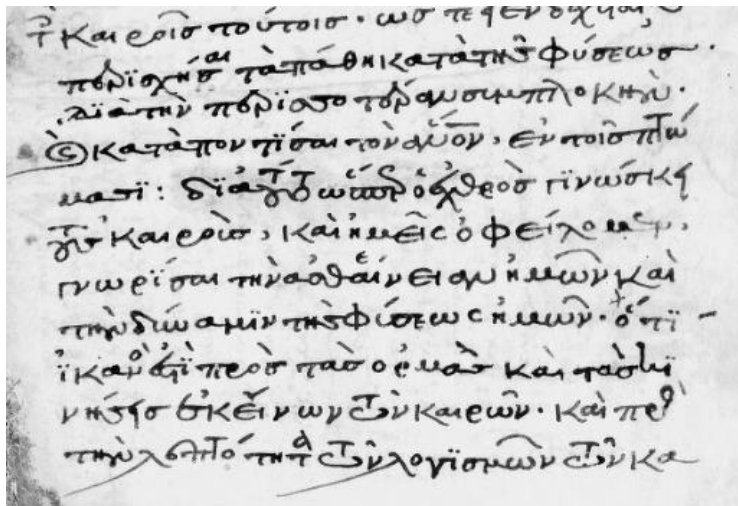 τ καιροῖς τούτοις· ὥσπερ ἐνδέχεται
περισχῆσαι τὰ πάθη κατὰ τῆς φύσεως·
διὰ τὴν περὶ συμπλοκήν·
καταποντίσαι τὸν νοῦν, ἐν τοῖς πτώ
μασι: διὰ τοῦτο ὥσπερ ὁ ἐχθρὸς γινώσκει
τοὺς καιροὺς, καὶ ἡμεῖς ὀφείλομεν,
γνωρίσαι τὴν ἀσθένειαν ἡμῶν καὶ
τὴν δύναμιν τῆς φύσεως ἡμῶν· ὅτι
ἱκανὴ πρὸς τὰς ὁρμὰς καὶ τὰς κι
νήσεις ἐκείνων τῶν καιρῶν· καὶ πρὸς
τὴν λεπτότητα τῶν λογισμῶν τῶν κα